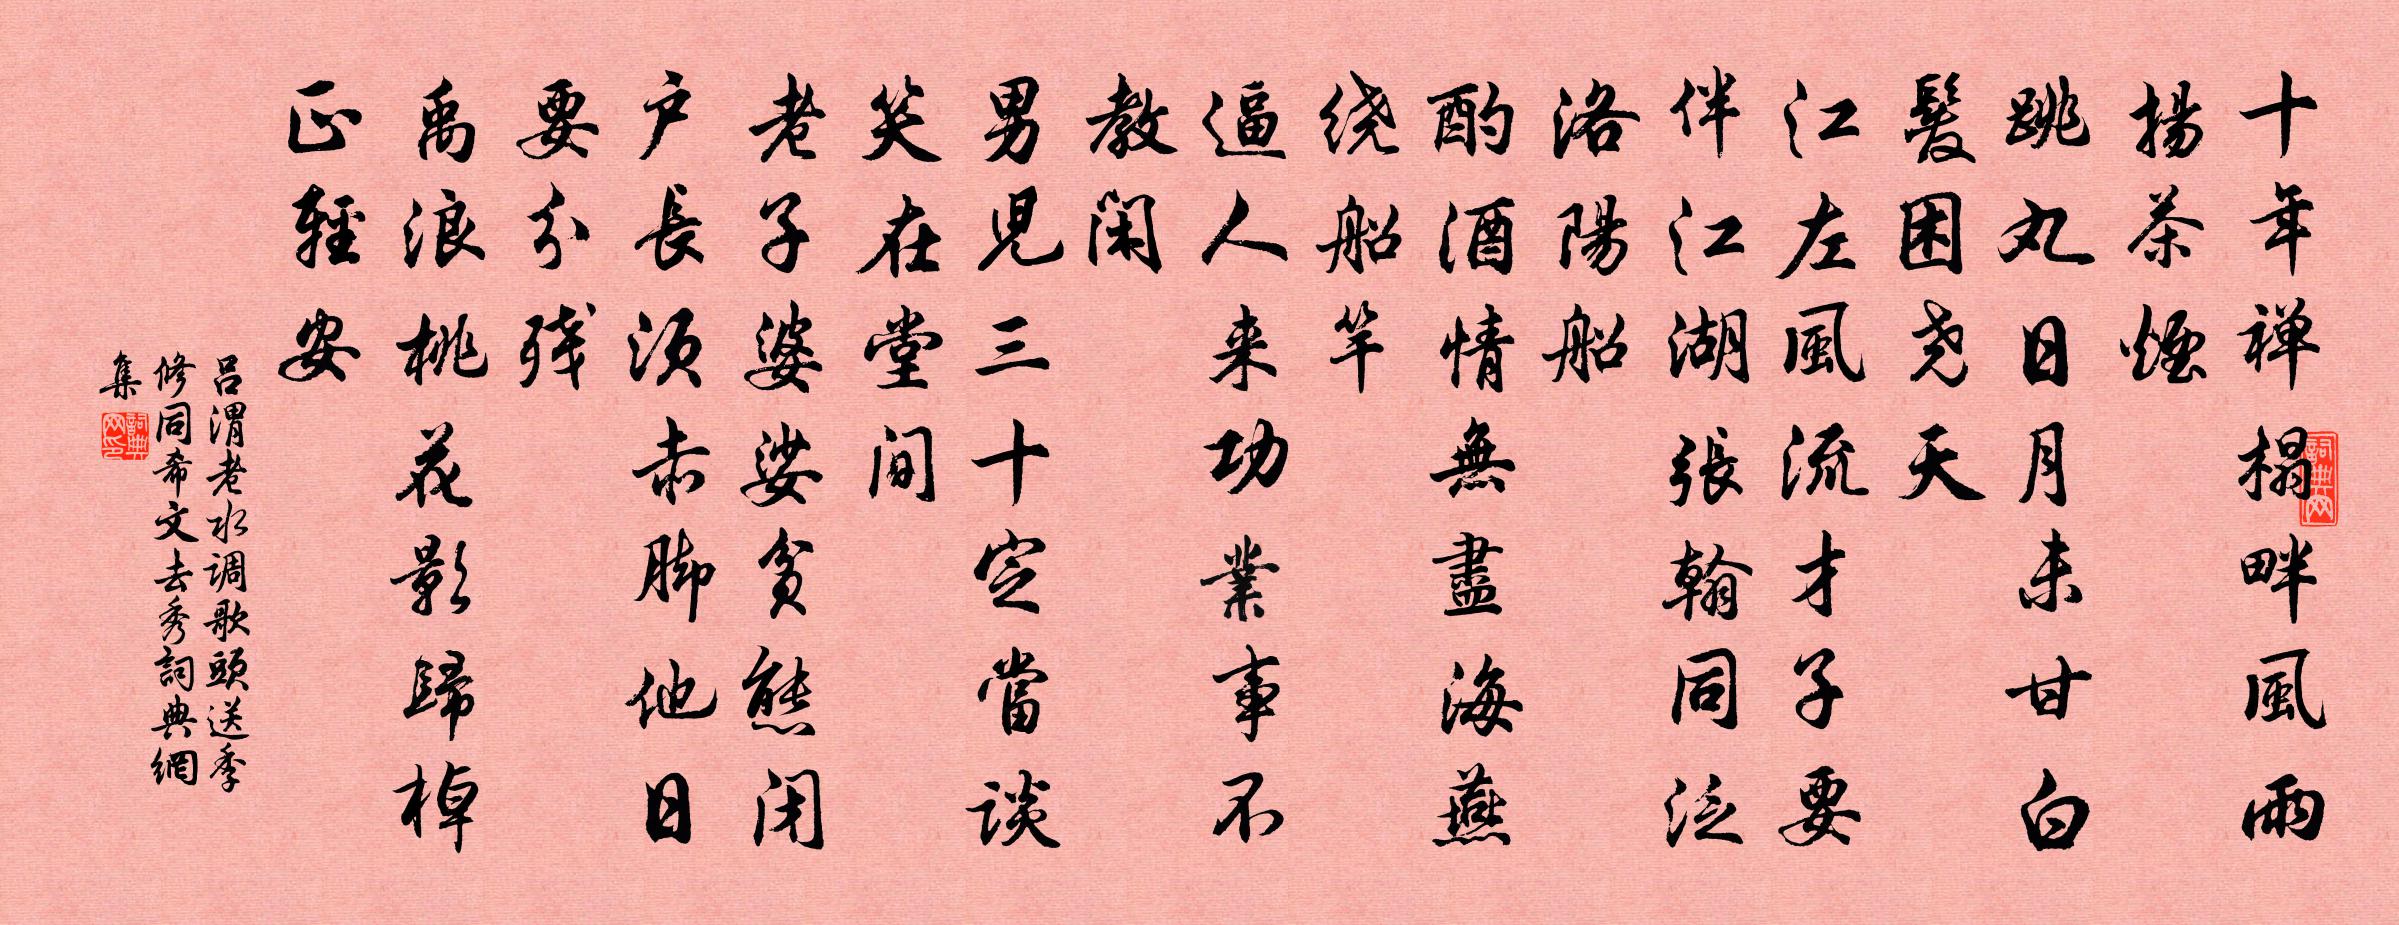 十年禅榻畔風雨
揚茶煙
跳丸日月未甘白
髮困尧天
江左風流才子要
伴江湖張翰同泛
洛陽船
酌酒情無盡海燕
绕船竿
逼人来功業事不
教閑
男児三十定當談
笑在堂间
老子婆娑貧態闭
户長须赤脚他日
要分残
禹浪桃花影歸棹
正輕安
吕渭老水调歌頭送季
修同希文去秀詞典網
集
詞典网
詞典网印